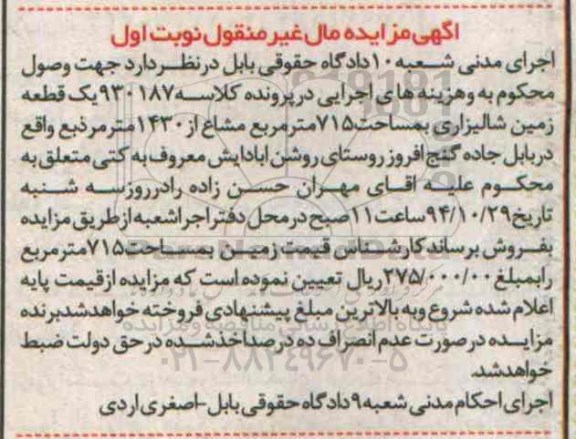 آگهی مزایده مال غیر منقول نوبت اول
اجرای مدنی شعبه ۱۰ دادگاه حقوقی بابل در نظر دارد جهت وصول
محکوم به وهزینه های اجرایی در پرونده کلاسه ۹۳۰۱۸۷ یک قطعه
زمین شالیزاری بمساحت ۷۱۵ مترمربع مشاع از ۱۴۳۰ مترمرذبع واقع
در بابل جاده گنج افروز روستای روشن ابادایش معروف به کتی متعلق به
محکوم علیه اقای مهران حسن زاده رادرروز سه شنبه
تاریخ ۹۴/۱۰/۲۹ ساعت ۱۱ صبح در محل دفتر اجرا شعبه از طریق مزایده
بفروش برساند کارشناس قیمت زمین بمساحت ۷۱۵ مترمربع
رابمبلغ ۲۷۵/۰۰۰/۰۰ ریال تعیین نموده است که مزایده از قیمت پایه
اعلام شده شروع وبه بالاترین مبلغ پیشنهادی فروخته خواهدشدبرنده
مزایده در صورت عدم انصراف ده درصد اخذ شده در حق دولت ضبط
خواهدشد.
اجرای احکام مدنی شعبه ۹ دادگاه حقوقی بابل-اصغری اردی
پایگاه اطلاع رسانی مناقصه و مزایده
۰۲۱-۸۸۳۴۹۶۷۰-۵